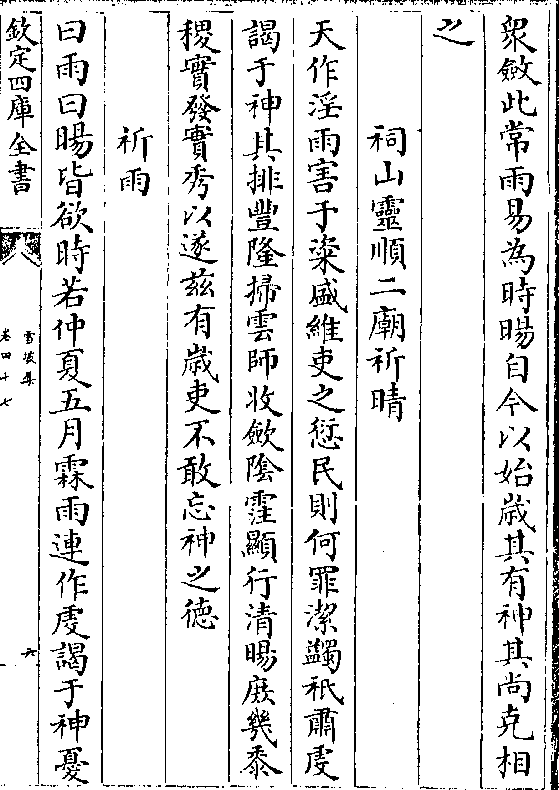 衆斂此常雨易為時暘自今以始歳其有神其尚克相
之
祠山靈順二廟祈晴
天作淫雨害于粢盛維吏之愆民則何罪潔蠲祇肅虔
謁于神其排豐隆掃雲師收歛陰霪顯行清暘庶幾黍
稷實發實秀以遂兹有歳吏不敢忘神之徳
祈雨
曰雨曰暘皆欲時若仲夏五月霖雨連作虔謁于神憂
欽定四庫全書
卷四十七
六